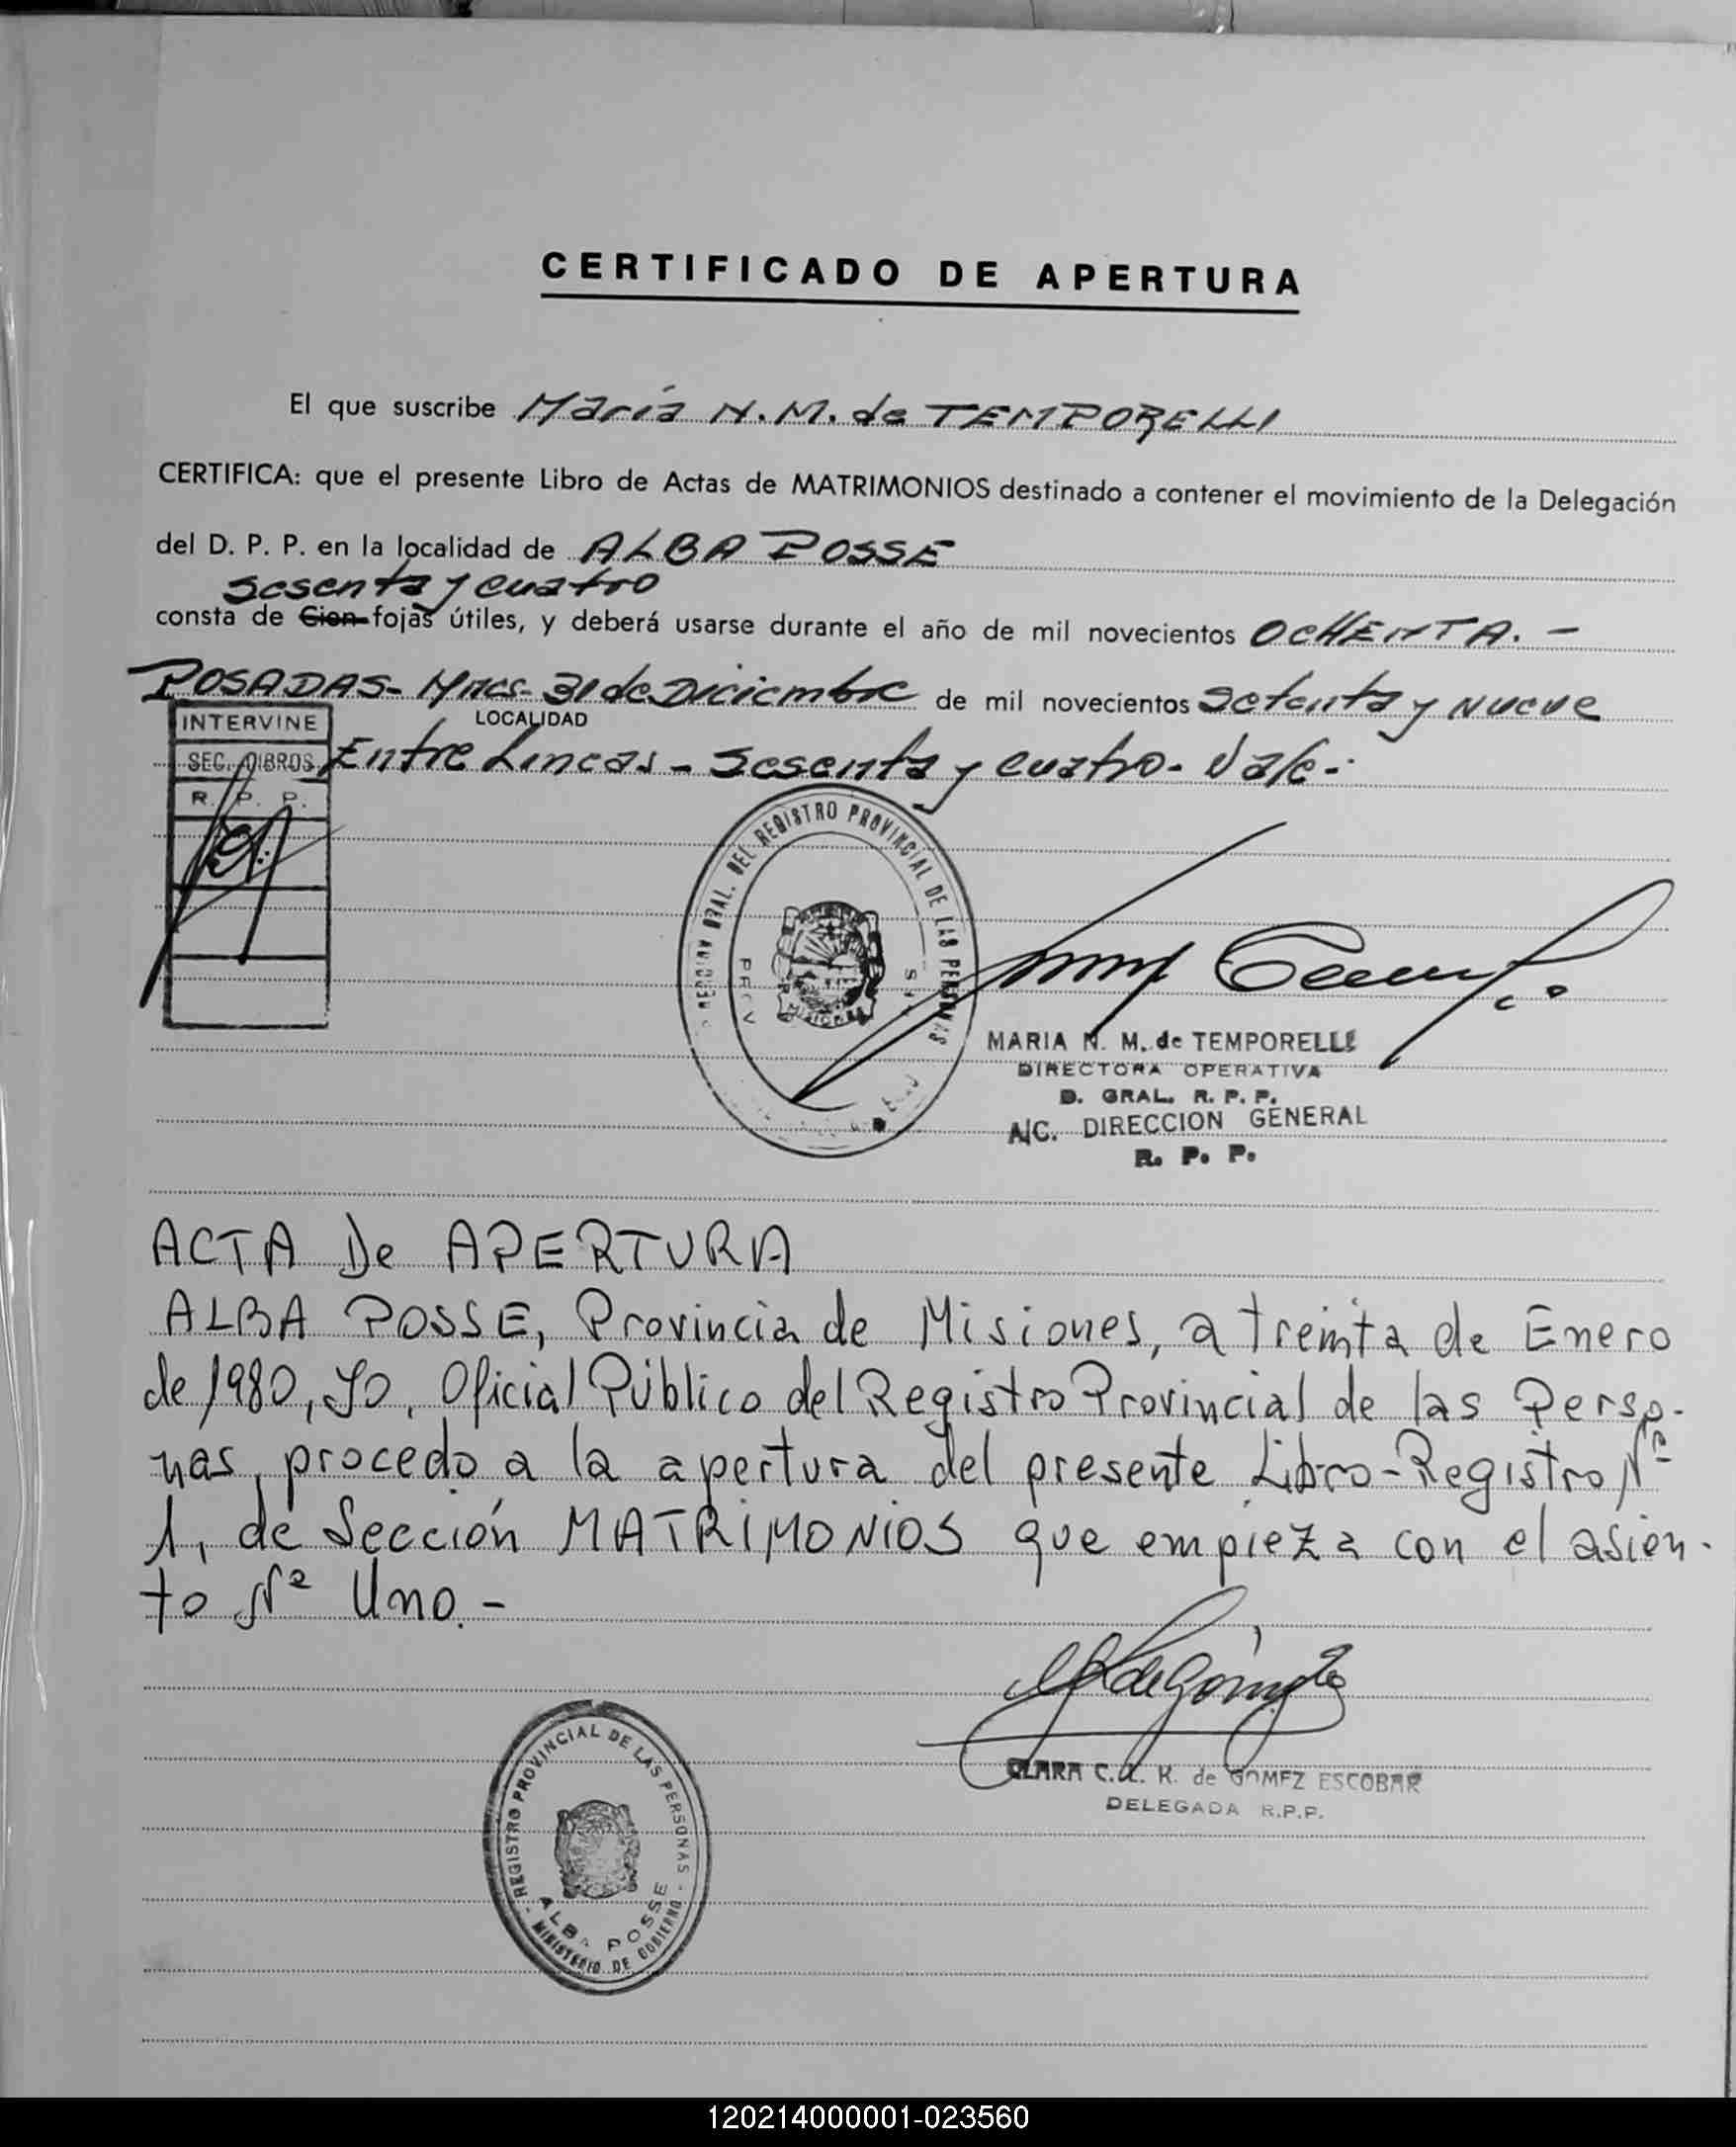 CERTIFICADO DE APERTURA
El que suscribe María N. M. de TEMPORELLI
CERTIFICA: que el presente Libro de Actas de MATRIMONIOS destinado a contener el movimiento de la Delegación
del D. P. P. en la localidad de ALBA POSSE
sesenta y cuatro
consta de Cien fojas útiles, y deberá usarse durante el año de mil novecientos OCHENTA. -
POSADAS - Mnes - 31 de Diciembre de mil novecientos setenta y nueve
LOCALIDAD
INTERVINE
SEC. LIBROS
R. P. P.
Entre Lineas - sesenta y cuatro - Vale -
DEL REGISTRO PROVINCIAL DE LAS PERSONAS
MISIONES
MARIA N. M. de TEMPORELLI
DIRECTORA OPERATIVA
D. GRAL. R. P. P.
A/C. DIRECCION GENERAL
R. P. P.
ACTA De APERTURA
ALBA POSSE, Provincia de Misiones, a treinta de Enero
de 1980, yo, Oficial Público del Registro Provincial de las Perso-
nas, procedo a la apertura del presente Libro-Registro Nº
1, de Sección MATRIMONIOS que empieza con el asien-
to Nº Uno. -
CLARA C. A. K. de GOMEZ ESCOBAR
DELEGADA R.P.P.
REGISTRO PROVINCIAL DE LAS PERSONAS -
ALBA POSSE
- MINISTERIO DE GOBIERNO -
120214000001-023560